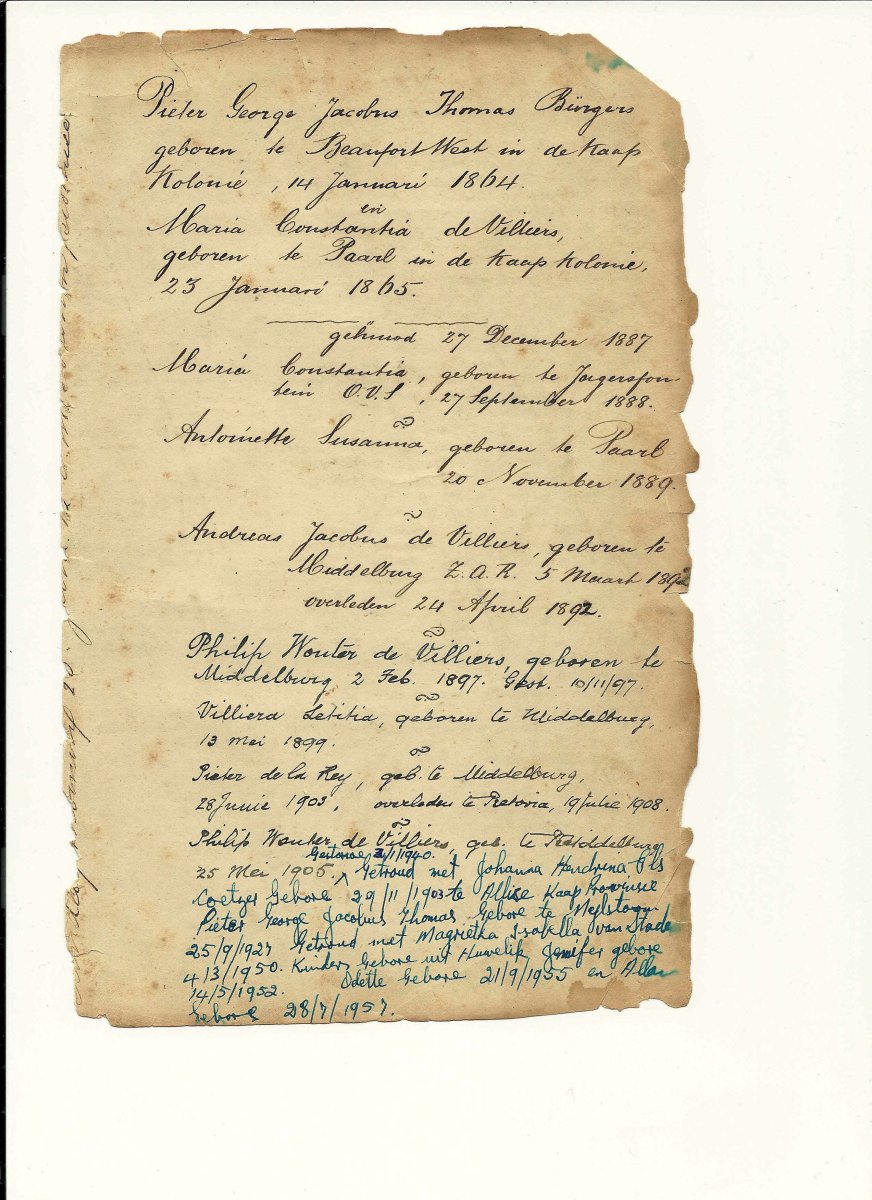 Pieter George Jacobus Thomas Bürgers
geboren te Beaufort West in de Kaap
Kolonie, 14 Januari 1864.
en
Maria Constantia de Villiers,
geboren te Paarl in de Kaap Kolonie,
23 Januari 1865.
gehuwd 27 December 1887
Maria Constantia, geboren te Jagersfon-
tein O.V.S, 27 September 1888.
Antoinette Susanna, geboren te Paarl
20 November 1889.
Andreas Jacobus de Villiers, geboren te
Middelburg Z.A.R. 5 Maart 1892
overleden 24 April 1892.
Philip Wouter de Villiers, geboren te
Middelburg 2 Feb. 1897. Gest. 10/11/97.
Villiera Letitia, geboren te Middelburg,
13 Mei 1899.
Pieter de la Rey, geb. te Middelburg,
28 Junie 1903, overleden te Pretoria, 19 Julie 1908.
Philip Wouter de Villiers, geb. te Middelburg
1/1940.
25 Mei 1905. Getroud met Johanna Hendrina Els
Coetzer Gebore 29/11/1903 te Kaap Provinsie
Pieter George Jacobus Thomas Gebore te Nylstoom
25/9/1927 Getroud met Magrietha Isabella van Stade
4/3/1950. Kinders Gebore uit Huwelik Jenifer gebore
14/5/1952. Odette Gebore 21/9/1955 en Allan
Gebore 28/7/1957.